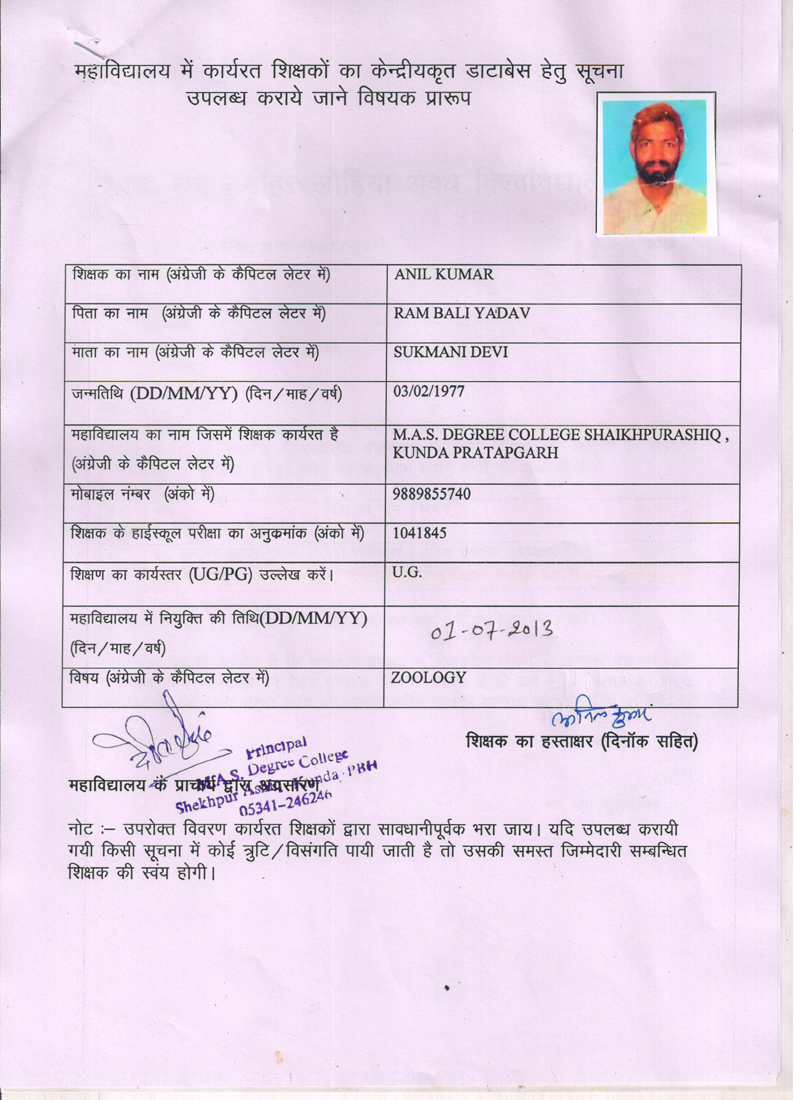 महाविद्यालय में कार्यरत शिक्षकों का केन्द्रीयकृत डाटाबेस हेतु सूचना
उपलब्ध कराये जाने विषयक प्रारूप
शिक्षक का नाम (अंग्रेजी के कैपिटल लेटर में) ANIL KUMAR
पिता का नाम (अंग्रेजी के कैपिटल लेटर में) RAM BALI YADAV
माता का नाम (अंग्रेजी के कैपिटल लेटर में) SUKMANI DEVI
जन्मतिथि (DD/MM/YY) (दिन/माह/वर्ष) 03/02/1977
महाविद्यालय का नाम जिसमें शिक्षक कार्यरत है
(अंग्रेजी के कैपिटल लेटर में)
M.A.S. DEGREE COLLEGE SHAIKHPURASHIQ ,
KUNDA PRATAPGARH
मोबाइल नंम्बर (अंको में) 9889855740
शिक्षक के हाईस्कूल परीक्षा का अनुक्रमांक (अंको में) 1041845
शिक्षण का कार्यस्तर (UG/PG) उल्लेख करें। U.G.
महाविद्यालय में नियुक्ति की तिथि(DD/MM/YY)
(दिन/माह/वर्ष)
01-07-2013
विषय (अंग्रेजी के कैपिटल लेटर में) ZOOLOGY
अनिल कुमार
शिक्षक का हस्ताक्षर (दिनॉक सहित)
महाविद्यालय के प्राचार्य द्वारा अग्रसारण
Principal
M.A.S. Degree College
Shekhpur Kunda, PBH
05341-246246
नोट :– उपरोक्त विवरण कार्यरत शिक्षकों द्वारा सावधानीपूर्वक भरा जाय। यदि उपलब्ध करायी
गयी किसी सूचना में कोई त्रुटि/विसंगति पायी जाती है तो उसकी समस्त जिम्मेदारी सम्बन्धित
शिक्षक की स्वंय होगी।